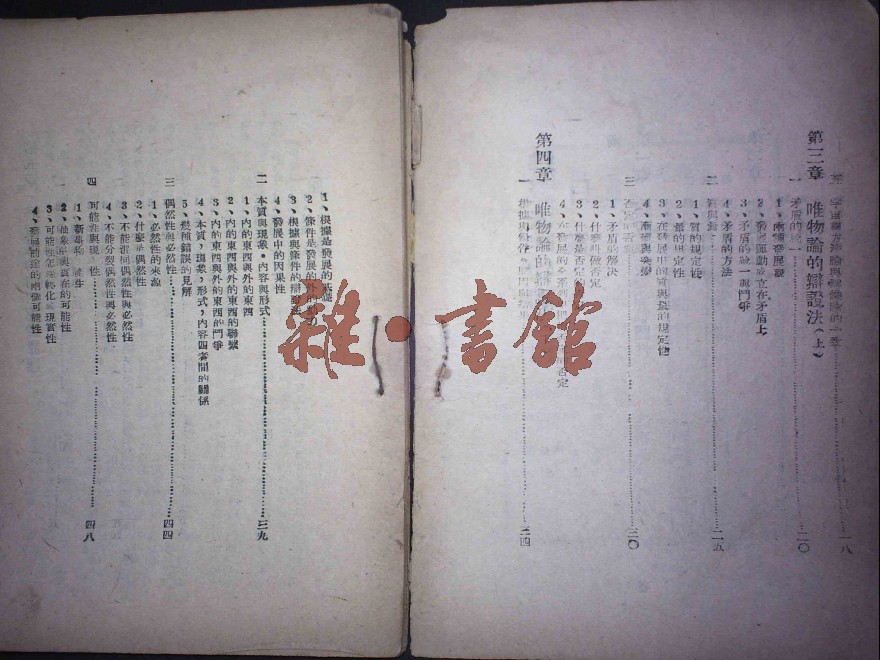 五、宇宙觀方法論與認識論的一致……一八
第三章　唯物論的辯證法（上）
一　矛盾的統一……二〇
1、兩種發展觀
2、發展運動成立在矛盾上
3、矛盾的統一與鬥爭
4、矛盾的方法
二　質與量……二五
1、質的規定性
2、量的規定性
3、在發展中的質與量的規定性
4、漸變與突變
三　否定的否定……三〇
1、矛盾的解決
2、什麼叫做否定
3、什麼是否定
4、在發展的
否定
第四章　唯物論的辯證
一　根據與條件……三四
1、根據是發展的基礎
2、條件是發展的外
3、根據與條件的
4、發展中的因果性
二　本質與現象・內容與形式……三九
1、內的東西與外的東西
2、內的東西與外的東西的聯繫
3、內的東西與外的東西的鬥爭
4、本質，現象，形式，內容四者間的關係
5、幾種錯誤的見解
三　偶然性與必然性……四四
1、必然性的來源
2、什麼是偶然性
3、不能混同偶然性與必然性
4、不能分裂偶然性與必然性
四　可能性與現　性……四八
1、新事物　誕生
2、抽象的與實在的可能性
3、可能性怎樣轉化為現實性
4、發展前途的兩個可能性
雜・書館